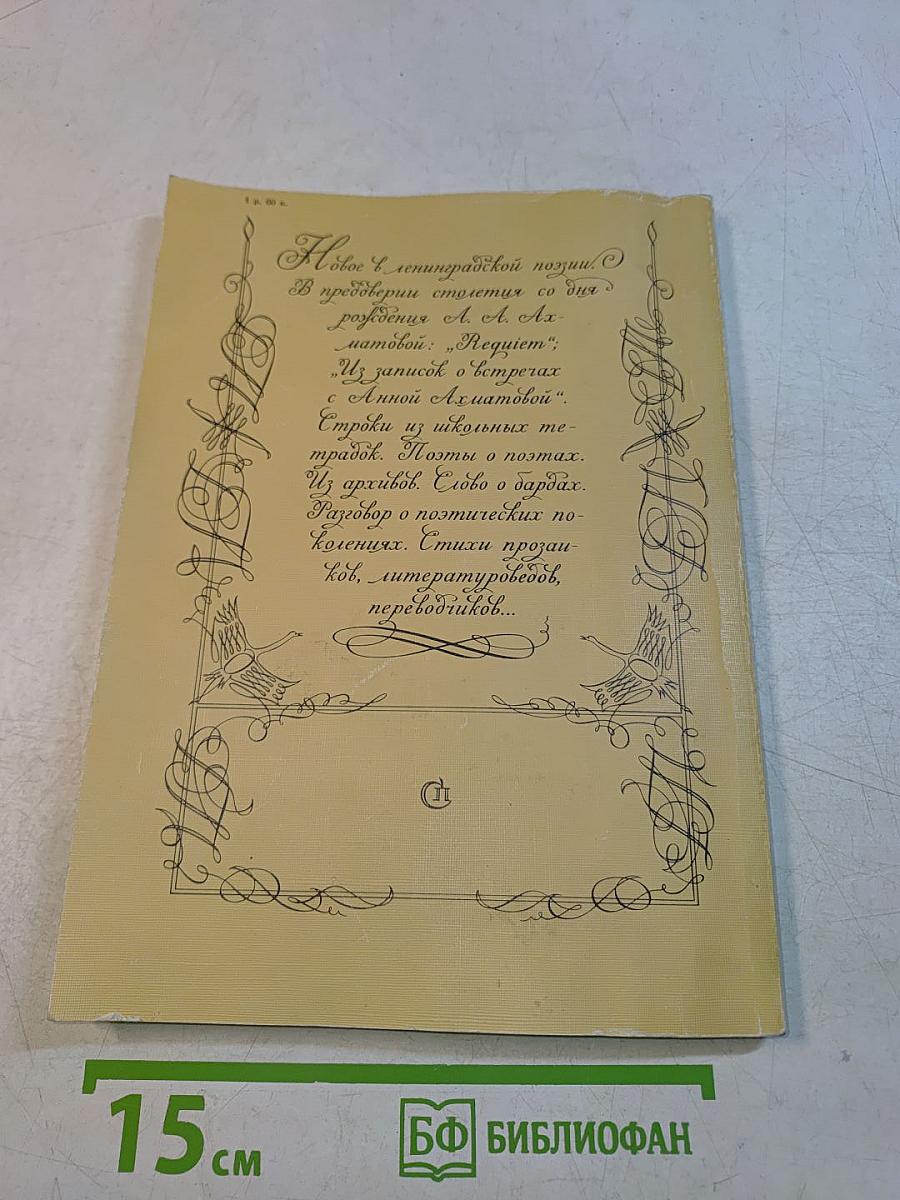 1 р. 60 к.
Новое в ленинградской поэзии.
В преддверии столетия со дня
рождения А. А. Ах-
матовой: „Requiem“;
„Из записок о встречах
с Анной Ахматовой“.
Строки из школьных те-
традок. Поэты о поэтах.
Из архивов. Слово о бардах.
Разговор о поэтических по-
колениях. Стихи прозаи-
ков, литературоведов,
переводчиков...
СП
15 см
БФ БИБЛИОФАН